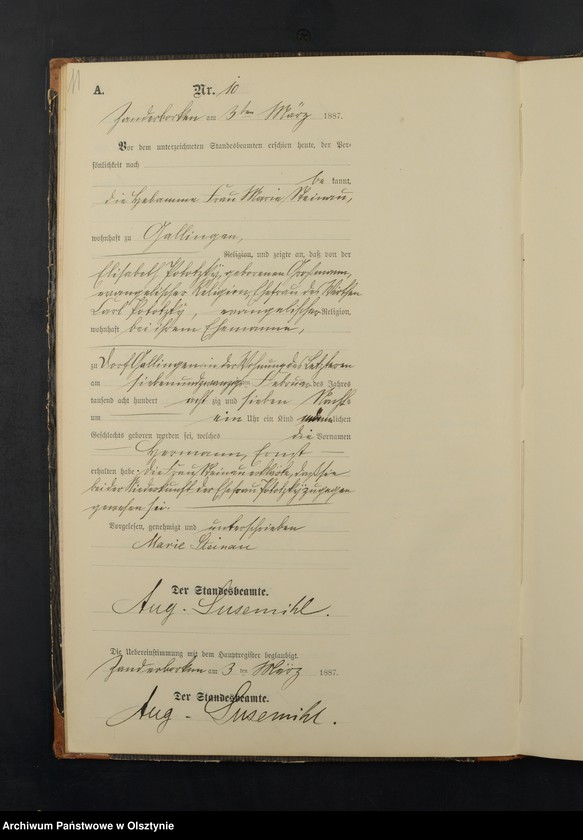 11
A. Nr. 10
Zanderborken am 3ten März 1887.
Vor dem unterzeichneten Standesbeamten erschien heute, der Per-
sönlichkeit nach
be kannt,
die Hebamme Frau Marie Steinau,
wohnhaft zu Gallingen,
Religion, und zeigte an, daß von der
Elisabeth Pototzky, geborenen Großmann,
evangelischer Religion, Ehefrau des Wirthen
Carl Pototzky, evangelischer Religion,
wohnhaft bei ihrem Ehemanne,
zu Dorf Gallingen in der Wohnung des Letzteren
am siebenundzwanzigsten Februar des Jahres
tausend acht hundert acht zig und sieben Nachts
um ein Uhr ein Kind männlichen
Geschlechts geboren worden sei, welches die Vornamen
Hermann, Ernst
erhalten habe. die Frau Steinau erklärte, daß sie
bei der Niederkunft der Ehefrau Pototzky zugegen
gewesen sei.
Vorgelesen, genehmigt und unterschrieben
Marie Steinau
Der Standesbeamte.
Aug. Susemihl.
Die Uebereinstimmung mit dem Hauptregister beglaubigt.
Zanderborken am 3 ten März 1887.
Der Standesbeamte.
Aug. Susemihl.
Archiwum Państwowe w Olsztynie